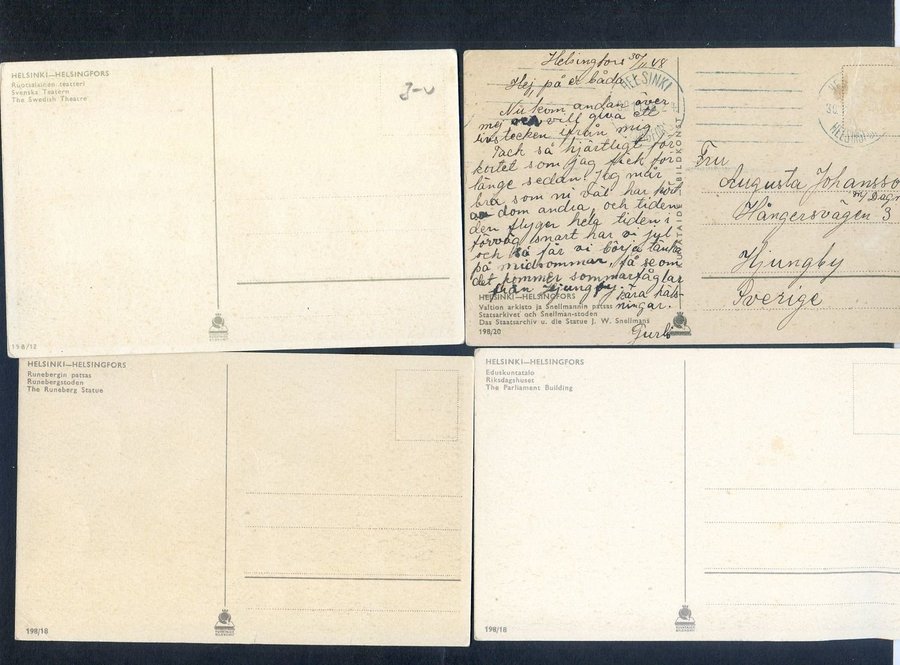 HELSINKI—HELSINGFORS
Ruotsalainen teatteri
Svenska Teatern
The Swedish Theatre
198/12
Helsingfors 30/11 48
Hej på er båda
Nu kom andan över
mej och vill giva ett
livstecken ifrån mig
Tack så hjärtligt för
kortet som jag fick för
länge sedan. Jag mår
bra som ni väl har hört
av dom andra, och tiden
den flyger hela tiden i
förväg snart har vi jul
och så får vi börja tänka
på midsommar, få se om
det kommer sommarfåglar
från Ljungby. Kära häls-
ningar.
Gurli
HELSINKI—HELSINGFORS
Valtion arkisto ja Snellmannin patsas
Statsarkivet och Snellman-stoden
Das Staatsarchiv u. die Statue J. W. Snellmans
198/20
HELSINKI
Fru
Augusta Johansso
Hångersvägen 3
Ljungby
Sverige
HELSINKI—HELSINGFORS
Runebergin patsas
Runebergstoden
The Runeberg Statue
198/18
HELSINKI—HELSINGFORS
Eduskuntatalo
Riksdagshuset
The Parliament Building
198/18